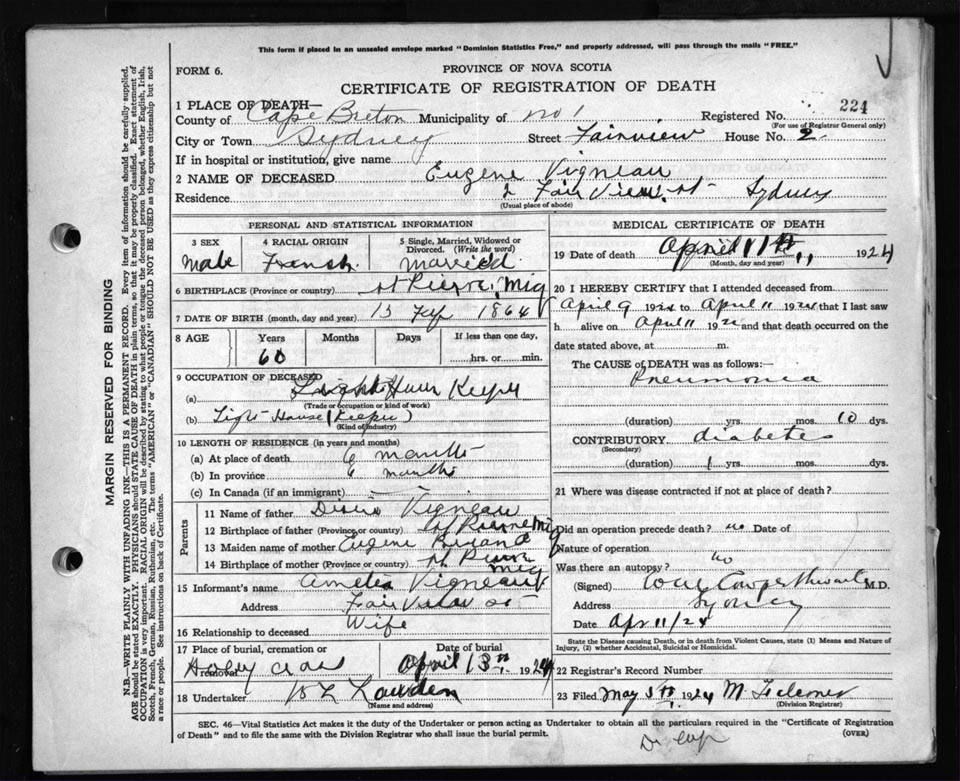 This form if placed in an unsealed envelope marked "Dominion Statistics Free," and properly addressed, will pass through the mails "FREE."
FORM 6.
PROVINCE OF NOVA SCOTIA
CERTIFICATE OF REGISTRATION OF DEATH
224
1 PLACE OF DEATH—
County of Cape Breton Municipality of No 1 Registered No.
(For use of Registrar General only)
City or Town Sydney Street Fairview House No. 2
If in hospital or institution, give name
2 NAME OF DECEASED Eugene Vigneau
Residence 2 Fair View st Sydney
(Usual place of abode)
PERSONAL AND STATISTICAL INFORMATION
3 SEX
Male
4 RACIAL ORIGIN
French
5 Single, Married, Widowed or Divorced. (Write the word)
Married
6 BIRTHPLACE (Province or country) st Pierre, Miq
7 DATE OF BIRTH (month, day and year) 15 1864
8 AGE
Years
60
Months
Days
If less than one day,
hrs. or min.
9 OCCUPATION OF DECEASED
(a) Light House Keeper
(Trade or occupation or kind of work)
(b) Light House (Keeper)
(Kind of Industry)
10 LENGTH OF RESIDENCE (in years and months)
(a) At place of death 6 months
(b) In province 6 months
(c) In Canada (if an immigrant)
Parents
11 Name of father Vigneau
12 Birthplace of father (Province or country) st Pierre Miq
13 Maiden name of mother Eugene
14 Birthplace of mother (Province or country) st Pierre Miq
15 Informant's name Amelia Vigneau
Address Fair View st
16 Relationship to deceased Wife
17 Place of burial, cremation or removal
Holy Cross
Date of burial
April 13th 1924
18 Undertaker Lowden
(Name and address)
MEDICAL CERTIFICATE OF DEATH
19 Date of death April 11th 11 1924
(Month, day and year)
20 I HEREBY CERTIFY that I attended deceased from
April 9 1924 to April 11 1924 that I last saw
h alive on April 11 192 and that death occurred on the
date stated above, at m.
The CAUSE OF DEATH was as follows:
Pneumonia
(duration) yrs. mos. 10 dys.
CONTRIBUTORY diabetes
(Secondary)
(duration) 1 yrs. mos. dys.
21 Where was disease contracted if not at place of death?
Did an operation precede death? no Date of
Nature of operation
Was there an autopsy? no
(Signed) M.D.
Address Sydney
Date Apr 11/24
State the Disease causing Death, or in death from Violent Causes, state (1) Means and Nature of Injury, (2) whether Accidental, Suicidal or Homicidal.
22 Registrar's Record Number
23 Filed May 5th 1924 M
(Division Registrar)
SEC. 46—Vital Statistics Act makes it the duty of the Undertaker or person acting as Undertaker to obtain all the particulars required in the "Certificate of Registration
of Death" and to file the same with the Division Registrar who shall issue the burial permit. (OVER)
MARGIN RESERVED FOR BINDING
N.B.—WRITE PLAINLY WITH UNFADING INK—THIS IS A PERMANENT RECORD. Every item of information should be carefully supplied.
AGE should be stated EXACTLY. PHYSICIANS should STATE CAUSE OF DEATH in plain terms, so that it may be properly classified. Exact statement of
OCCUPATION is very important. RACIAL ORIGIN will be described by stating to what people or tongue the deceased person belonged, whether English, Irish,
Scotch, French, German, Russian, Ruthenian, etc. The terms "AMERICAN" or "CANADIAN" SHOULD NOT BE USED as they express citizenship but not
a race or people. See instructions on back of Certificate.